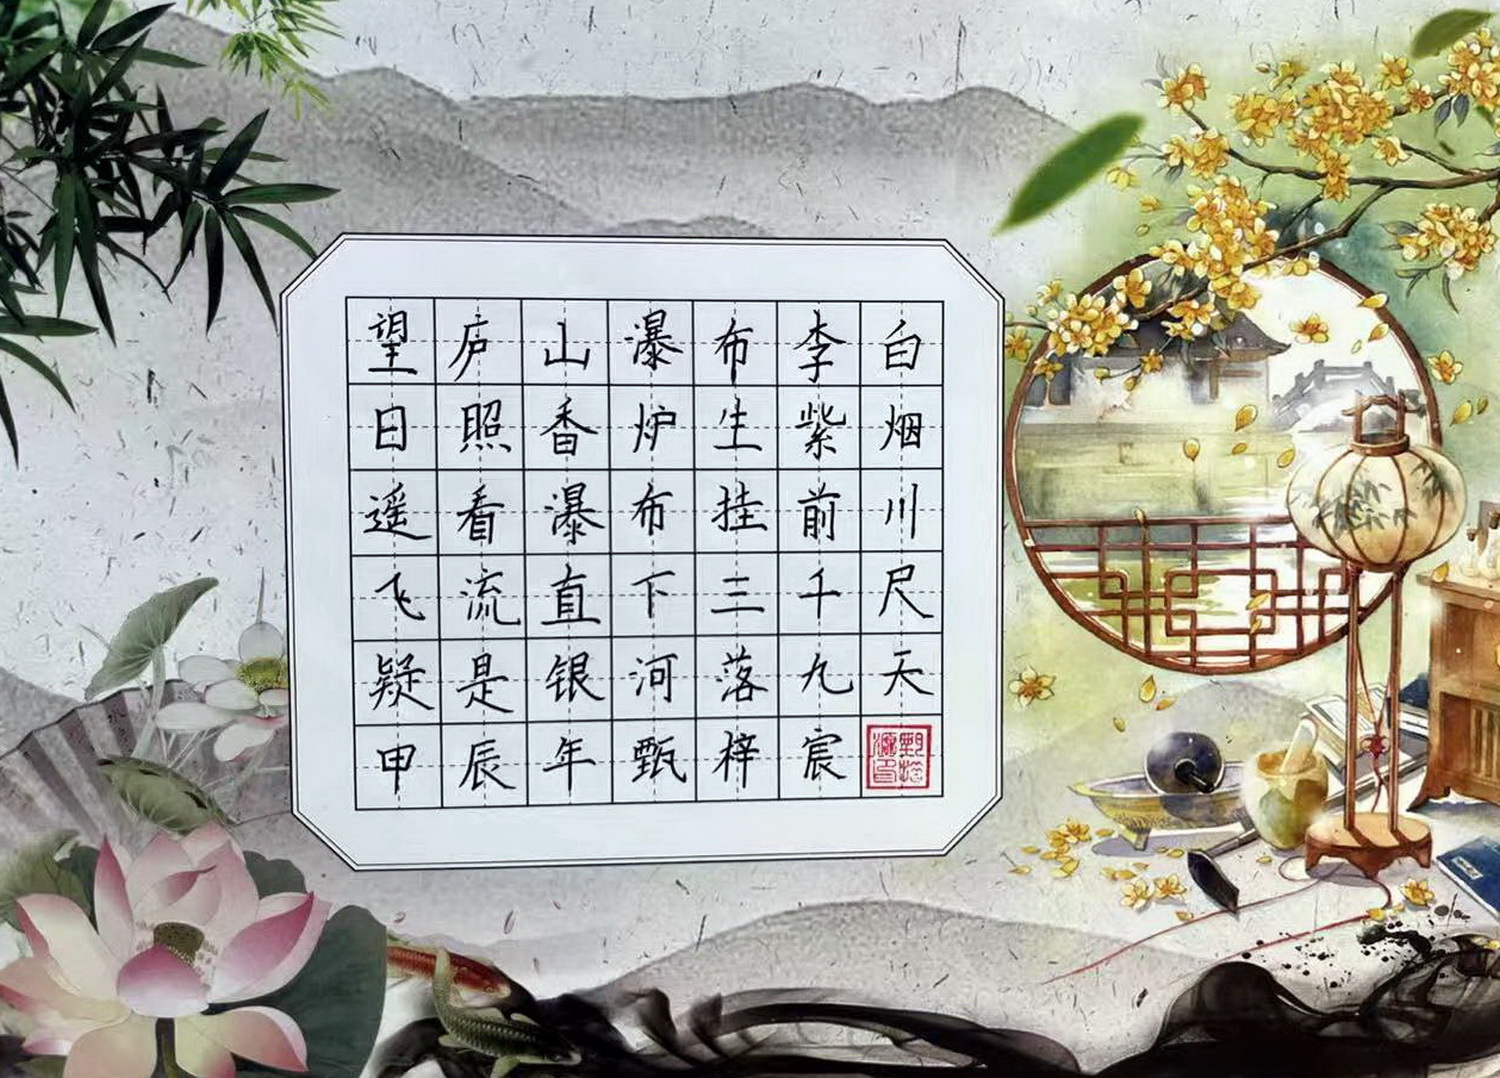 望庐山瀑布李白
日照香炉生紫烟
遥看瀑布挂前川
飞流直下三千尺
疑是银河落九天
甲辰年甄梓宸